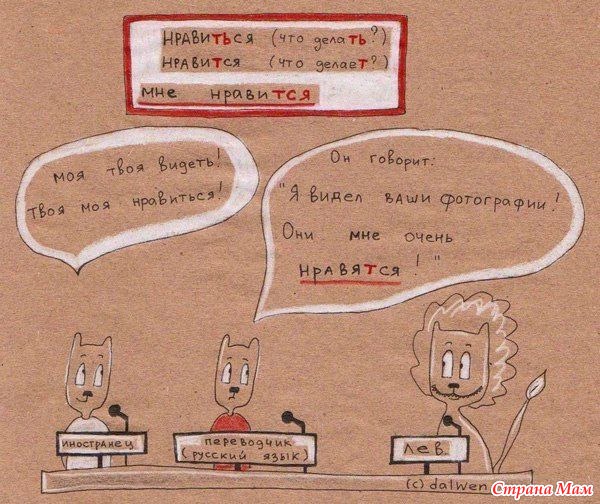 нравиться (что делать?)
нравится (что делает?)
мне нравится
моя твоя видеть!
твоя моя нравиться!
Он говорит:
"Я видел ваши фотографии!
Они мне очень
нравятся!"
иностранец
переводчик
(русский язык)
лев
(c) dalwen
Страна Мам